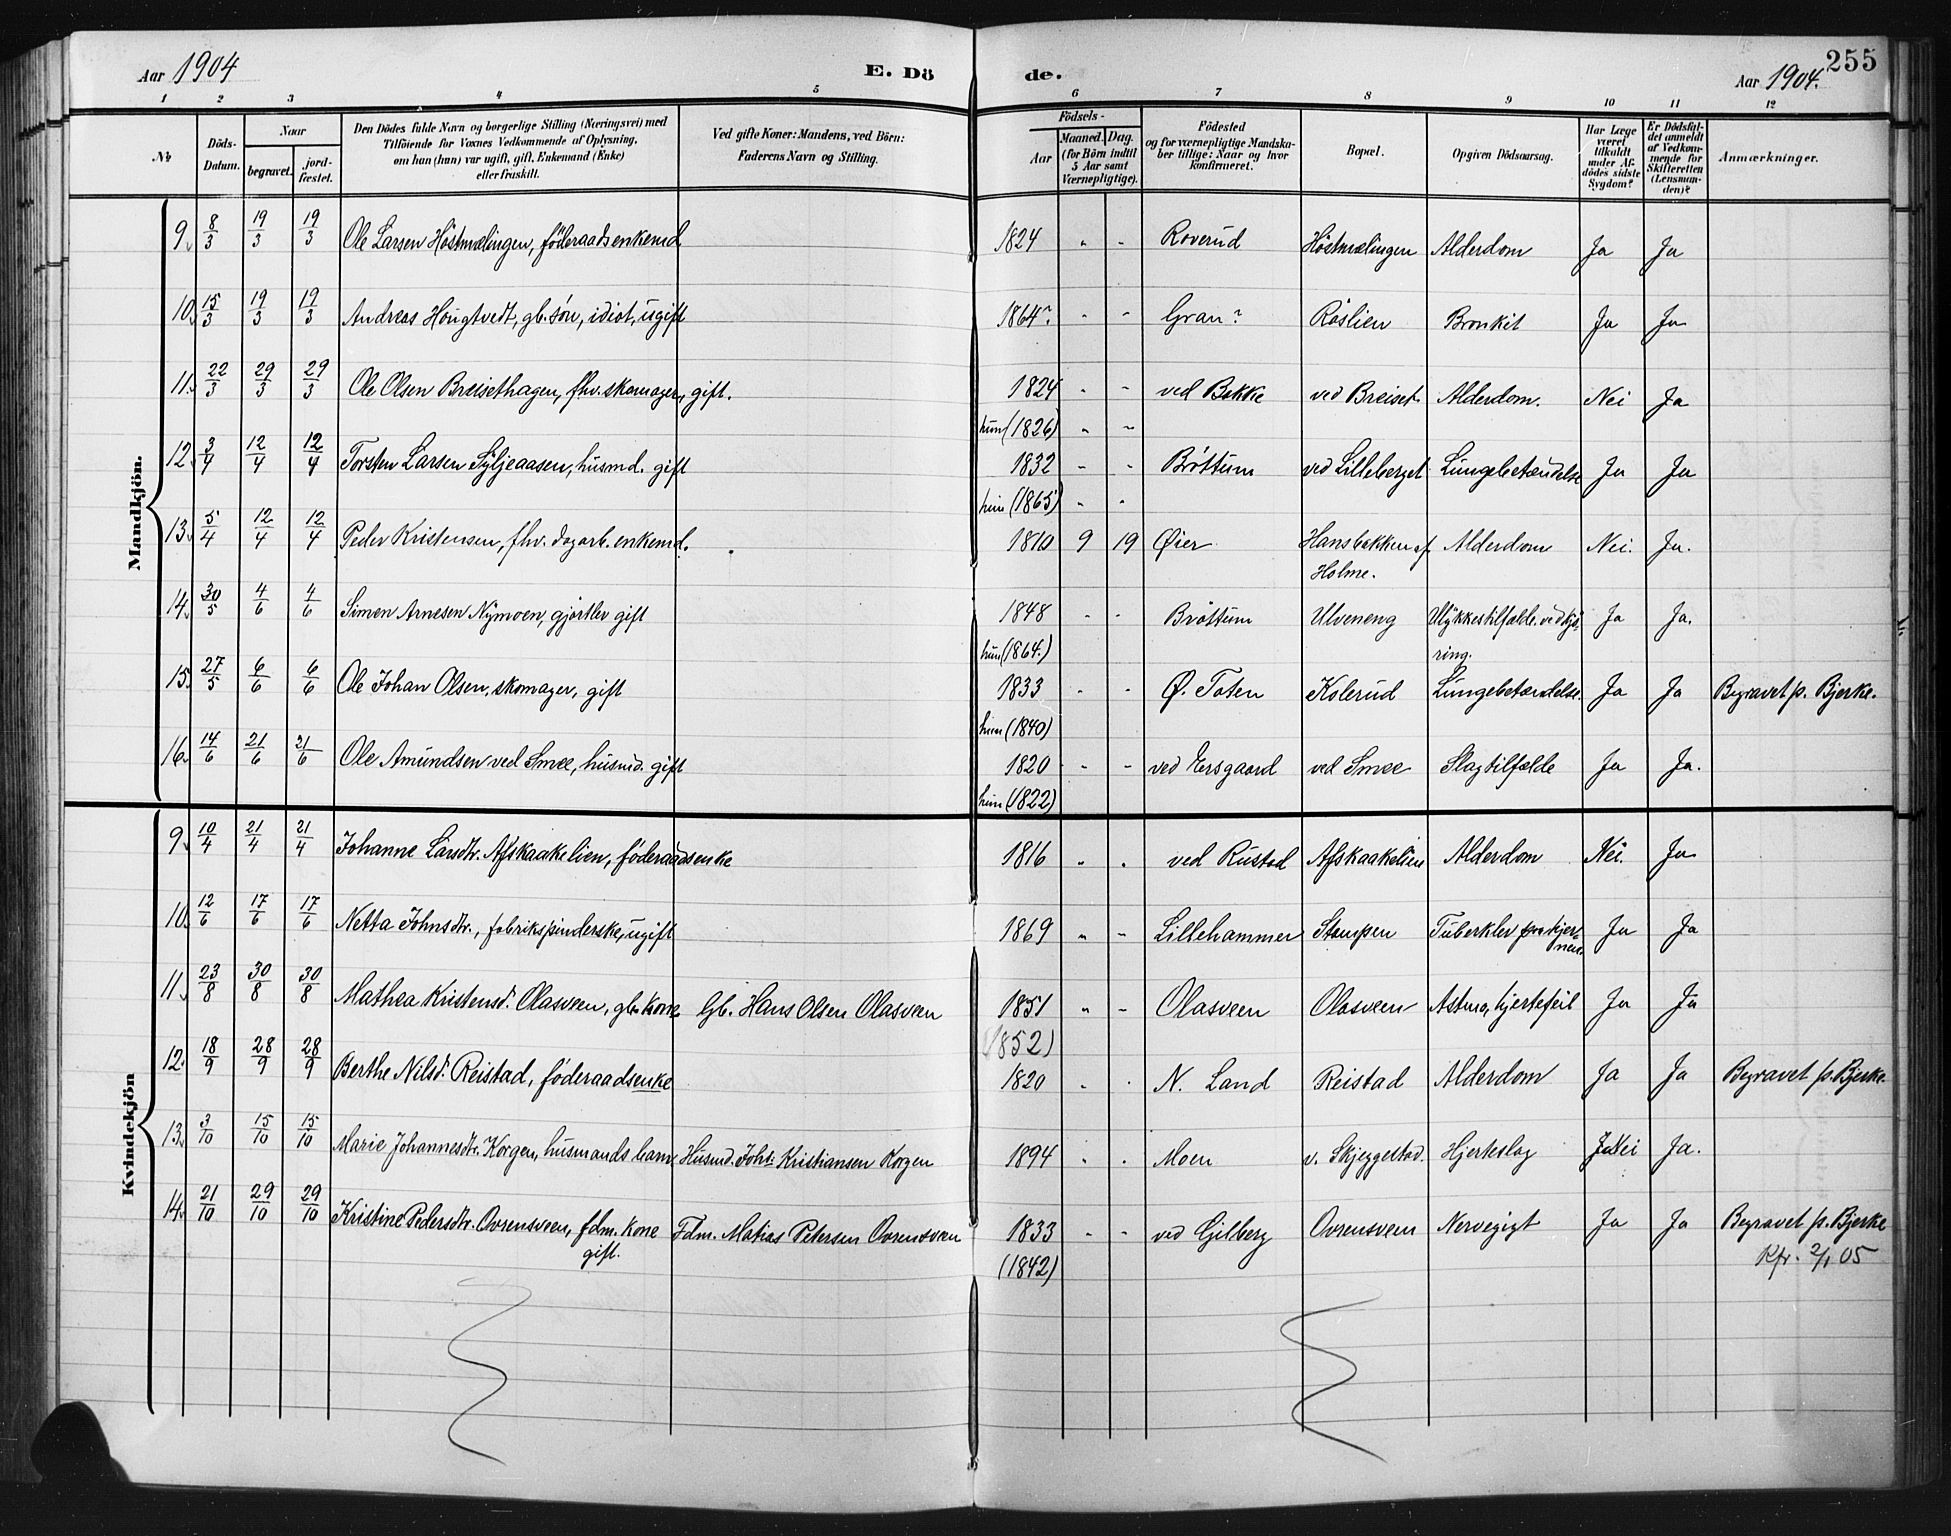 Aar 1904 E. Dö de. Aar 1904. 255
1 2 3 4 5 6 7 8 9 10 11 12
№ Döds-Datum. Naar begravet. jord-fæstet. Den Dödes fulde Navn og borgerlige Stilling (Næringsvei) med Tilföiende for Voxnes Vedkommende af Oplysning, om han (hun) var ugift, gift, Enkemand (Enke) eller fraskilt. Ved gifte Koner: Mandens, ved Börn: Faderens Navn og Stilling. Födsels- Aar Maaned. Dag. (for Börn indtil 5 Aar samt Værnepligtige). Födested og for værnepligtige Mandskaber tillige: Naar og hvor konfirmeret. Bopæl. Opgiven Dödsaarsag. Har Læge været tilkaldt under Afdödes sidste Sygdom? Er Dödsfaldet anmeldt af Vedkommende for Skifteretten (Lensmanden)? Anmærkninger.
Mandkjön.
9. 8/3 19/3 19/3 Ole Larsen Höstmælingen, föderaadsenkemd. 1824 - - Roverud Höstmælingen Alderdom Ja Ja
10. 15/3 19/3 19/3 Andreas Hougtvedt, gb. sön, idiot, ugift 1864? - - Gran? Röslien Bronkit Ja Ja
11. 22/3 29/3 29/3 Ole Olsen Breisethagen, fhv. skomager, gift. 1824 - - ved Bakke ved Breiset. Alderdom. Nei Ja
hun (1826) - -
12. 3/4 12/4 12/4 Torsten Larsen Syljeaasen, husmd. gift 1832 - - Bröttum ved Lilleberget Lungebetændelse Ja Ja
hun (1865) - -
13. 5/4 12/4 12/4 Peder Kristensen, fhv. dagarb. enkemd. 1810 9 19 Öier Hansbakken af Alderdom Nei. Ja.
Holme.
14. 30/5 4/6 4/6 Simen Arnesen Nymoen, gjörtler gift 1848 - - Bröttum Ulveneng Ulykkestilfælde ved kjö- Ja Ja.
hun (1864.) ring.
15. 27/5 6/6 6/6 Ole Johan Olsen, skomager, gift 1833 - - Ø. Toten Kolerud Lungebetændelse. Ja Ja Begravet p. Bjerke.
hun (1840)
16. 14/6 21/6 21/6 Ole Amundsen ved Smee, husmd. gift 1820 - - ved Ersgaard ved Smee Slagtilfælde Ja Ja.
hun (1822)
Kvindekjön
9. 10/4 21/4 21/4 Johanne Larsdtr. Afskaakelien, föderaadsenke 1816 - - ved Rustad Afskaakelien Alderdom Nei. Ja
10. 12/6 17/6 17/6 Netta Johnsdtr., fabrikspinderske, ugift 1869 - - Lillehammer Stampen Tuberkler kjert- Ja Ja
11. 23/8 30/8 30/8 Mathea Kristensd. Olasveen, gb. kone Gb. Hans Olsen Olasveen 1851 - - Olasveen Olasveen Astma, hjertefeil Ja Ja
(1852)
12. 18/9 28/9 28/9 Berthe Nilsd. Reistad, föderaadsenke 1820 - - N. Land Reistad Alderdom Ja Ja Begravet p. Bjerke.
13. 3/10 15/10 15/10 Marie Johannesdtr. Korgen, husmands barn Husmd. Johs. Kristiansen Korgen 1894 - - Moen v. Skjeggestad. Hjerteslag Nei Ja.
14. 21/10 29/10 29/10 Kristine Pedersdtr. Ovrensveen, fdm. kone Fdm. Matias Petersen Ovrensveen 1833 - - ved Gilberg Ovrensveen Nervegigt Ja Ja Begravet p. Bjerke
gift. (1842) Kfr. 2/1 05